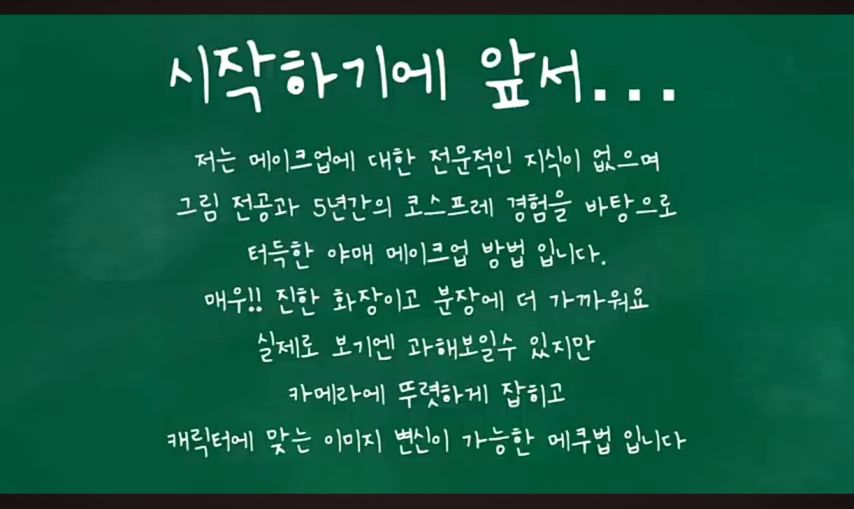 시작하기에 앞서...
저는 메이크업에 대한 전문적인 지식이 없으며
그림 전공과 5년간의 코스프레 경험을 바탕으로
터득한 야매 메이크업 방법 입니다.
매우!! 진한 화장이고 분장에 더 가까워요
실제로 보기엔 과해보일수 있지만
카메라에 뚜렷하게 잡히고
캐릭터에 맞는 이미지 변신이 가능한 메쿠법 입니다